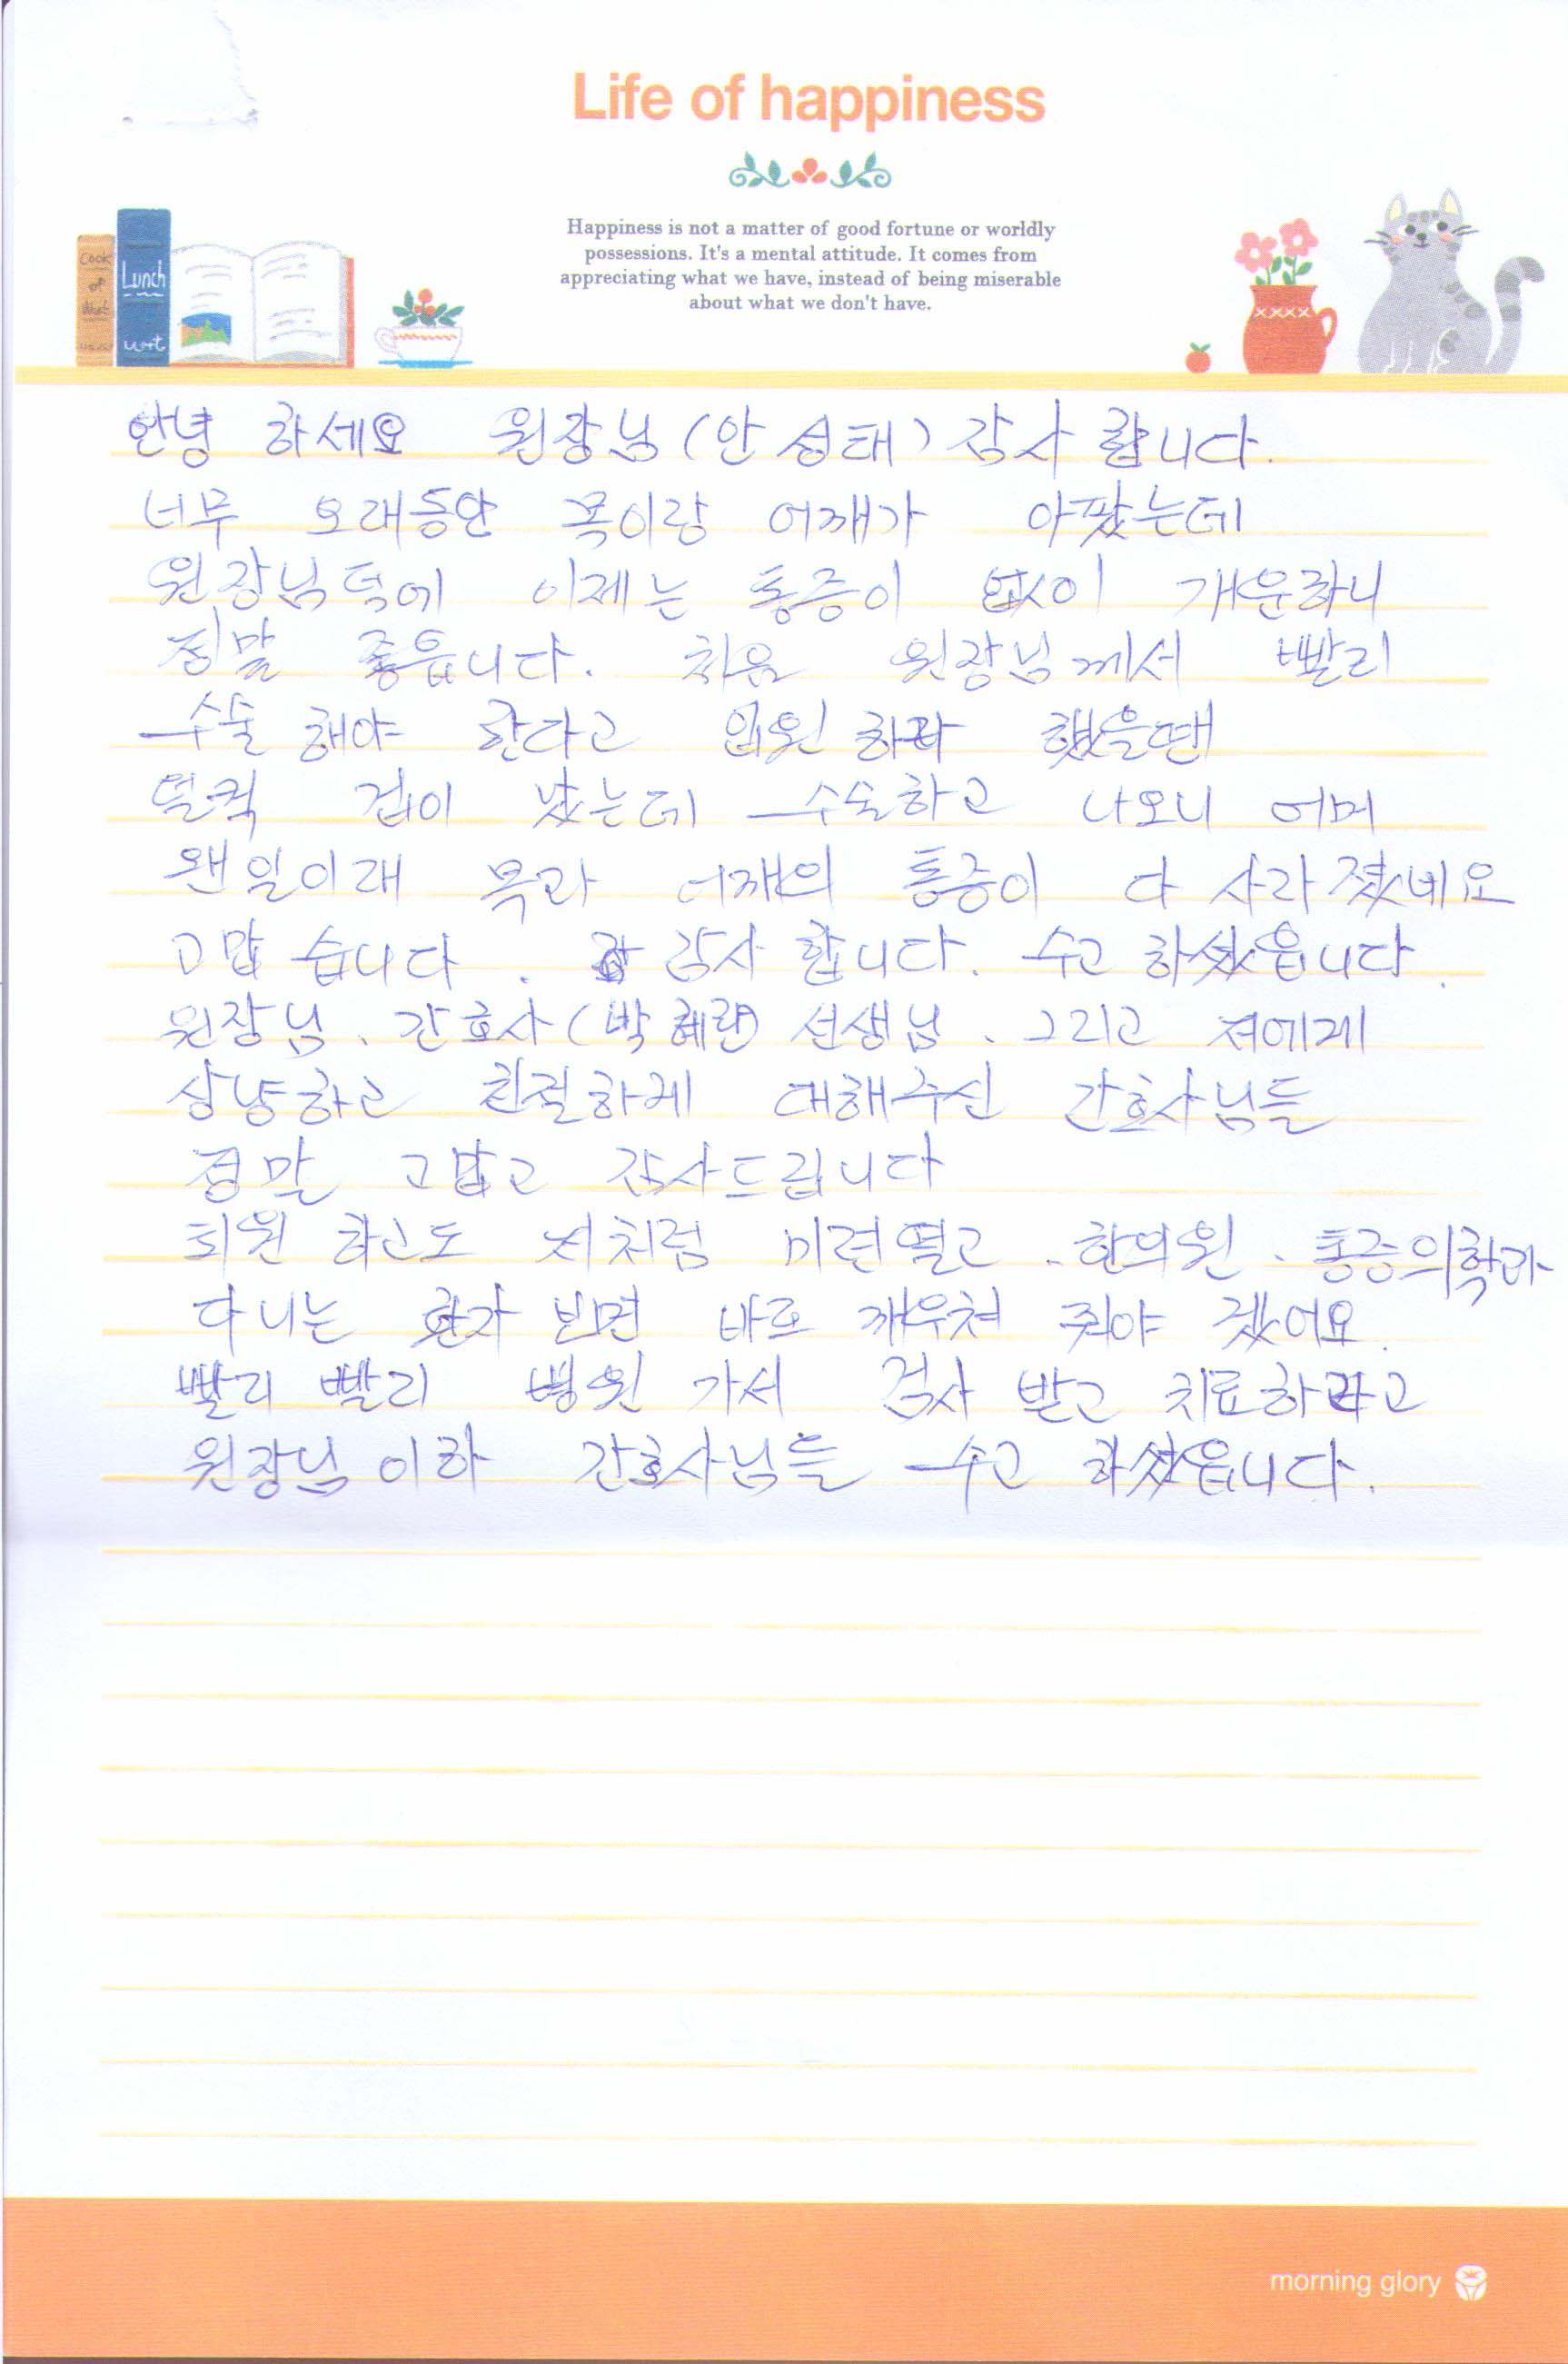 Life of happiness
Happiness is not a matter of good fortune or worldly
possessions. It's a mental attitude. It comes from
appreciating what we have, instead of being miserable
about what we don't have.
Cook
of
Lunch
안녕 하세요 원장님 (안성태) 감사 합니다.
너무 오래동안 목이랑 어깨가 아팠는데
원장님덕에 이제는 통증이 없이 개운하니
정말 좋읍니다. 처음 원장님께서 빨리
수술 해야 한다고 입원 하라 했을땐
덜컥 겁이 났는데 수술하고 나오니 어머
왠일이래 목과 어깨의 통증이 다 사라졌네요
고맙 습니다. 감사 합니다. 수고 하셨읍니다.
원장님. 간호사(박혜란) 선생님. 그리고 저에게
상냥하고 친절하게 대해주신 간호사님들
정말 고맙고 감사드립니다
퇴원 하고도 저처럼 미련떨고. 한의원. 통증의학과
다니는 환자 보면 바로 깨우쳐 줘야 겠어요.
빨리 빨리 병원 가서 검사 받고 치료하라고
원장님 이하 간호사님들 수고 하셨읍니다.
morning glory